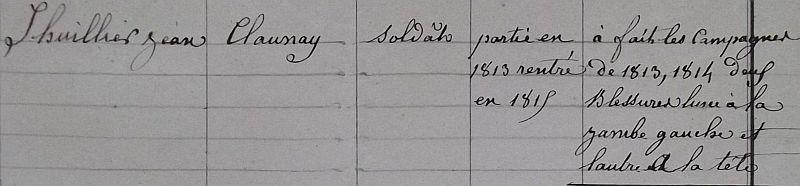 Thuillier jean Claunay soldat partie en à fait les Campagnes
1813 rentré de 1813, 1814 deux
en 1815 Blessures lune à la
jambe gauche et
lautre à la tête